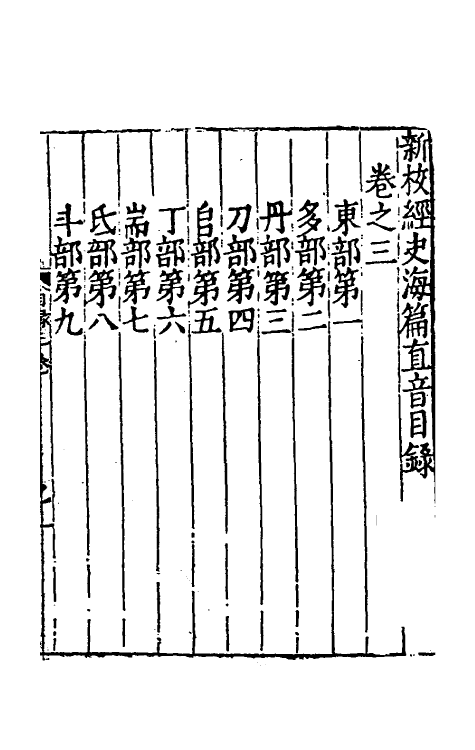 新校經史海篇直音目錄
卷之三
東部第一
多部第二
丹部第三
刀部第四
𠂤部第五
丁部第六
耑部第七
氐部第八
斗部第九